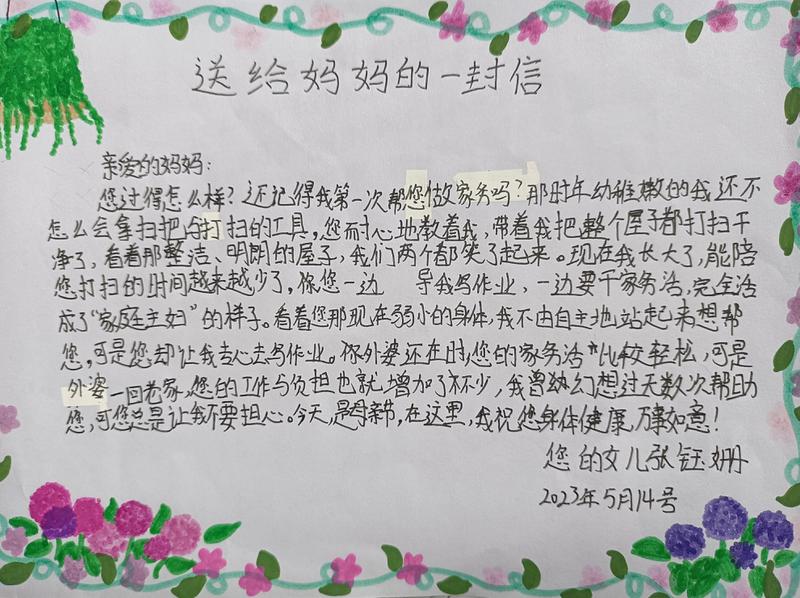 送给妈妈的一封信
亲爱的妈妈：
您过得怎么样？还记得我第一次帮您做家务吗？那时年幼稚嫩的我还不
怎么会拿扫把的打扫的工具，您耐心地教着我，带着我把整个屋子都打扫干
净了，看着那整洁、明朗的屋子，我们两个都笑了起来。现在我长大了，能陪
您打扫的时间越来越少了，您一边 导我写作业，一边要干家务活，完全活
成了“家庭主妇”的样子。看着您那现在弱小的身体，我不由自主地站起来想帮
您，可是您却让我去心去写作业。外婆还在时，您的家务活比较轻松，可是
外婆一回老家，您的工作与负担也就增加了不少，我曾幼幻想过无数次帮助
您，可您总是让我不要担心。今天，是母亲节，在这里，我祝您身体健康，万事如意！
您的女儿张钰姗
2023年5月14号